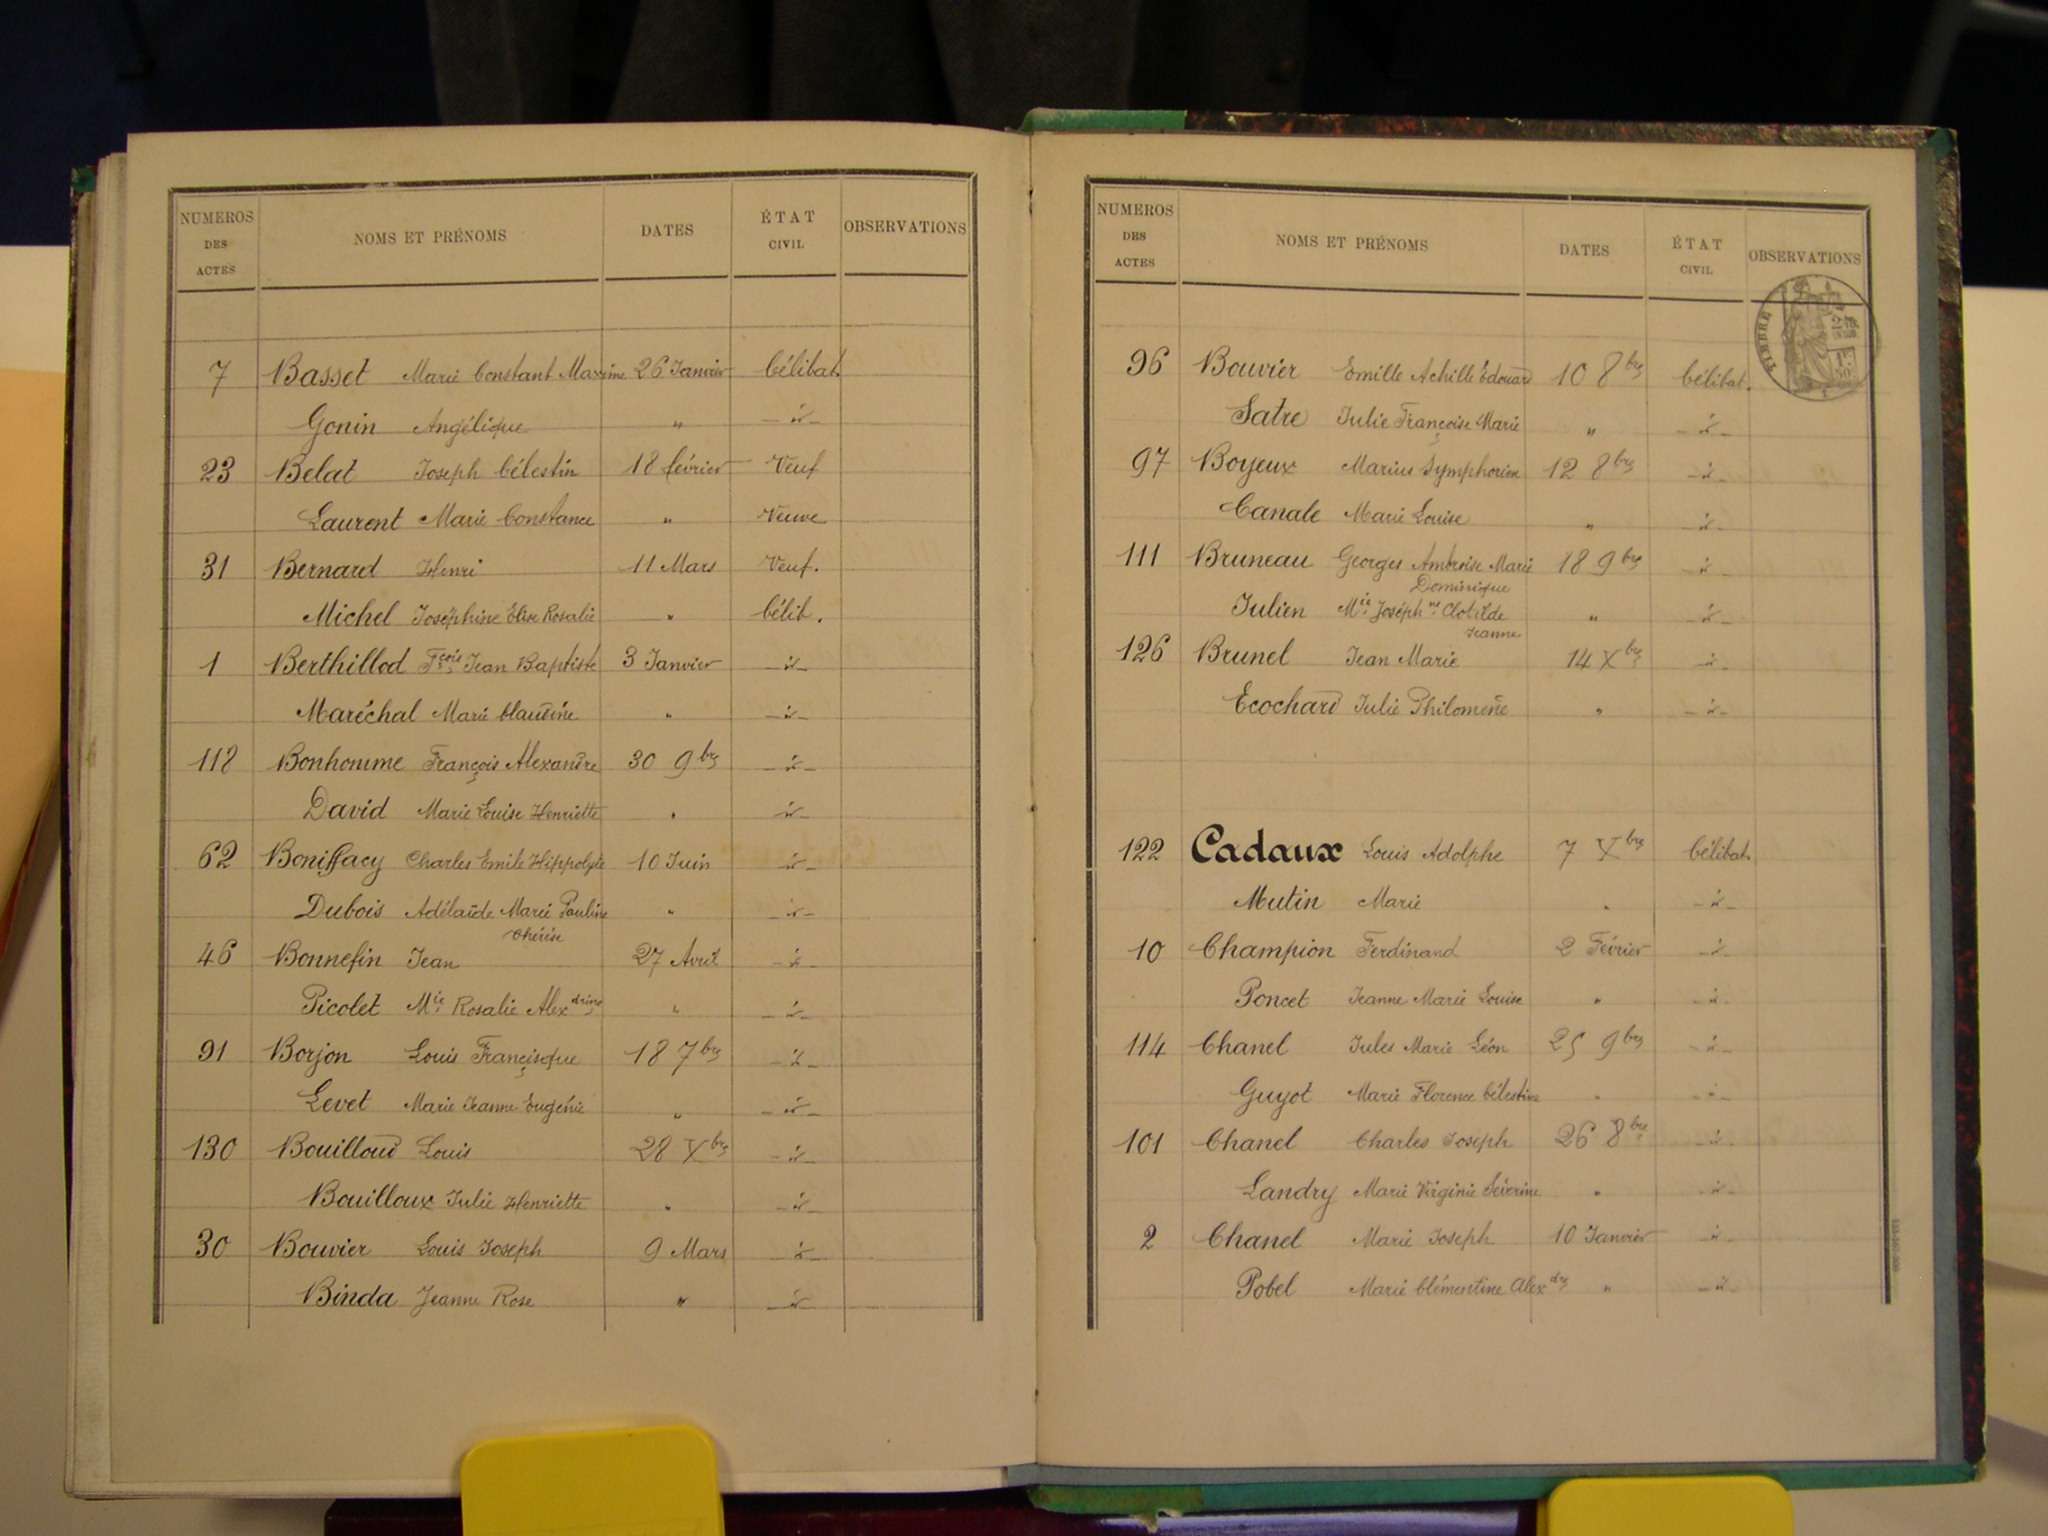 NUMEROS DES ACTES NOMS ET PRÉNOMS DATES ÉTAT CIVIL OBSERVATIONS
7 Basset Marie Constant Maxime 26 Janvier Célibat.
Gonin Angélique " - id -
23 Belat Joseph Célestin 18 février Veuf
Laurent Marie Constance " Veuve
31 Bernard Henri 11 Mars Veuf.
Michel Joséphine Elise Rosalie " Célib.
1 Berthillod Fçois Jean Baptiste 3 Janvier - id -
Maréchal Marie Claudine " - id -
118 Bonhomme François Alexandre 30 9bre - id -
David Marie Louise Henriette " - id -
62 Boniffacy Charles Emile Hippolyte 10 Juin - id -
Dubois Adélaïde Marie Pauline " - id -
46 Bonnefin Jean 27 Avril - id -
Picolet Mie Rosalie Alexdrine " - id -
91 Borjon Louis Françisque 18 7bre - id -
Levet Marie Jeanne Eugénie " - id -
130 Bouilloud Louis 28 Xbre - id -
Bouilloux Julie Henriette " - id -
30 Bouvier Louis Joseph 9 Mars - id -
Binda Jeanne Rose " - id -
NUMEROS DES ACTES NOMS ET PRÉNOMS DATES ÉTAT CIVIL OBSERVATIONS
TIMBRE
96 Bouvier Emille Achille Édouard 10 8bre Célibat.
Satre Julie Françoise Marie " - id -
97 Boyeux Marius Symphorien 12 8bre - id -
Canale Marie Louise " - id -
111 Bruneau Georges Ambroise Marie 18 9bre - id -
Dominique
Julien Mie Joséphne Clotilde " - id -
Jeanne
126 Brunel Jean Marie 14 Xbre - id -
Ecochard Julie Philomène " - id -
122 Cadaux Louis Adolphe 7 Xbre Célibat.
Mutin Marie " - id -
10 Champion Ferdinand 2 Février - id -
Poncet Jeanne Marie Louise " - id -
114 Chanel Jules Marie Léon 25 9bre - id -
Guyot Marie Florence Célestine " - id -
101 Chanel Charles Joseph 26 8bre - id -
Landry Marie Virginie Séverine " - id -
2 Chanel Marie Joseph 10 Janvier - id -
Pobel Marie Clémentine Alexdre " - id -